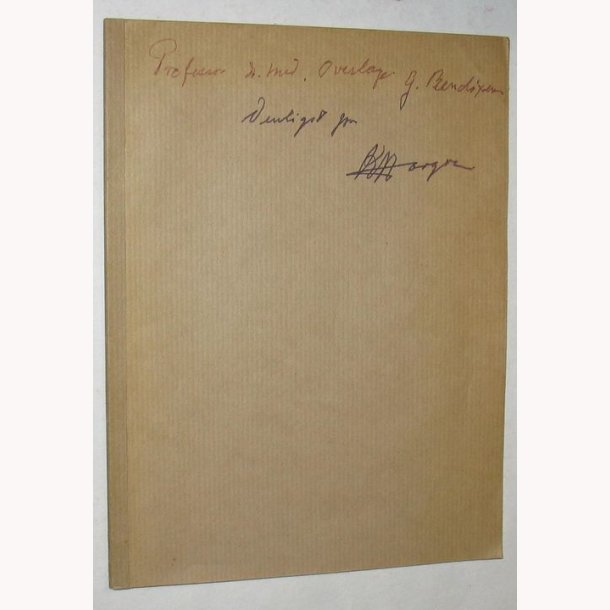 Professor Dr. med. Overlæge G. Bendixen
Venligst fra